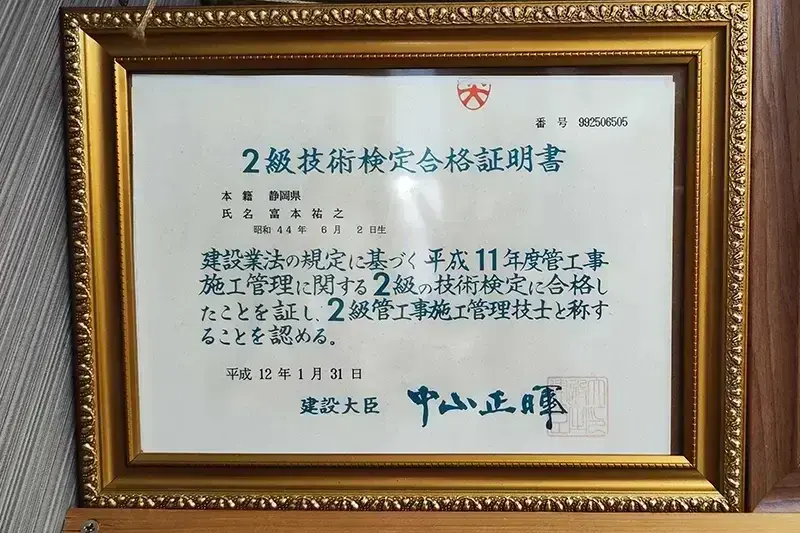 番号 992506505
2級技術検定合格証明書
本籍 静岡県
氏名 富本祐之
昭和44年 6月 2日生
建設業法の規定に基づく平成11年度管工事
施工管理に関する2級の技術検定に合格し
たことを証し、2級管工事施工管理技士と称す
ることを認める。
平成12年1月31日
建設大臣 中山正暉